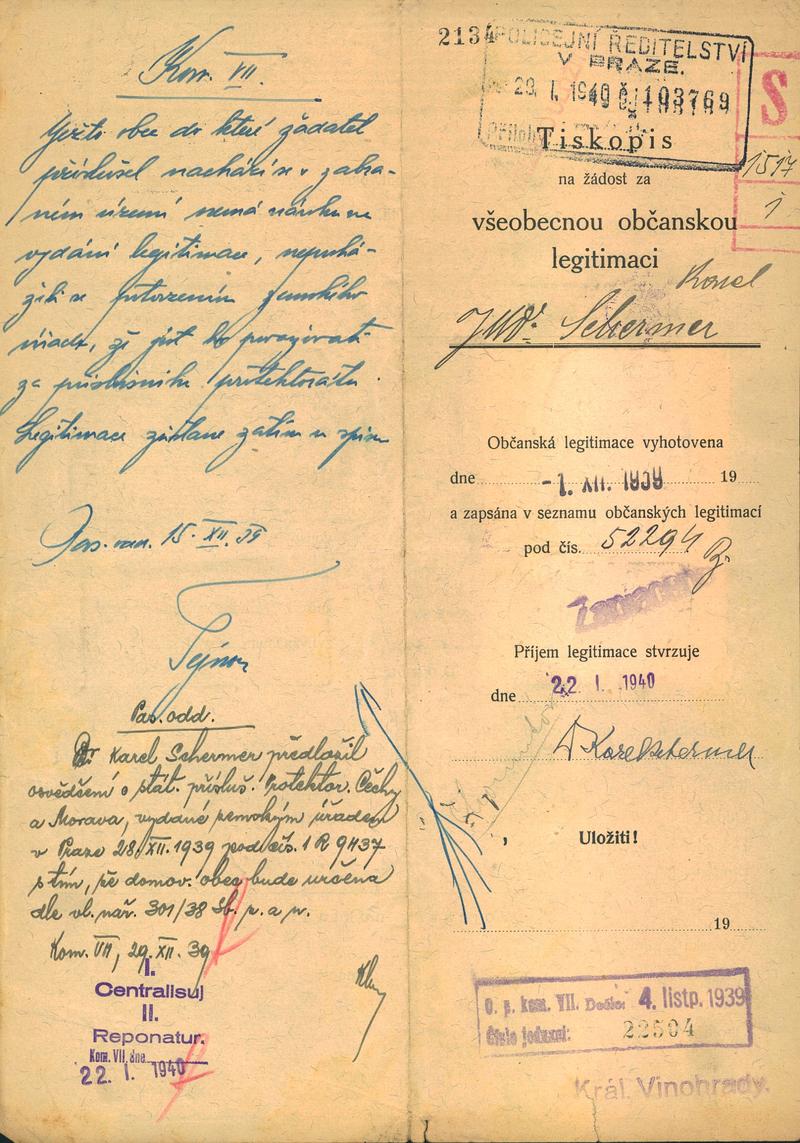 Kom. VII.
Ježto obec do které žadatel
příslušel nachází se v zabra-
ném území nemá nároku na
vydání legitimace, neproká-
že-li se potvrzením zemského
úřadu, že jest ho považovati
za příslušníka protektorátu.
Legitimace zůstane zatím u spisu
Pas. odd. 15. XII. 39
Pas. odd.
Dr Karel Schermer předložil
osvědčení o stát. přísluš. Protektor. Čechy
a Morava, vydané zemským úřadem
v Praze 28. XII. 1939 pod čís. 1 R 9437
s tím, že domov. obec bude určena
dle vl. nař. 301/38 Sb. z. a n.
Kom. VII, 29. XII. 39
I.
Centralisuj
II.
Reponatur.
Kom. VII, dne
22. I. 1940
2134
POLICEJNÍ ŘEDITELSTVÍ
V PRAZE.
23. I. 1940 Č.j. 103769
Příloh
S
1517
1
Tiskopis
na žádost za
všeobecnou občanskou
legitimaci
Karel
JUDr. Schermer
Občanská legitimace vyhotovena
dne -1. XII. 1939 19
a zapsána v seznamu občanských legitimací
pod čís. 52294
Příjem legitimace stvrzuje
dne 22. I. 1940
Dr Karel Schermer
Uložiti!
19
O. p. kom. VII. Došlo: 4. listp. 1939
Číslo jednací: 22504
Král. Vinohrady.